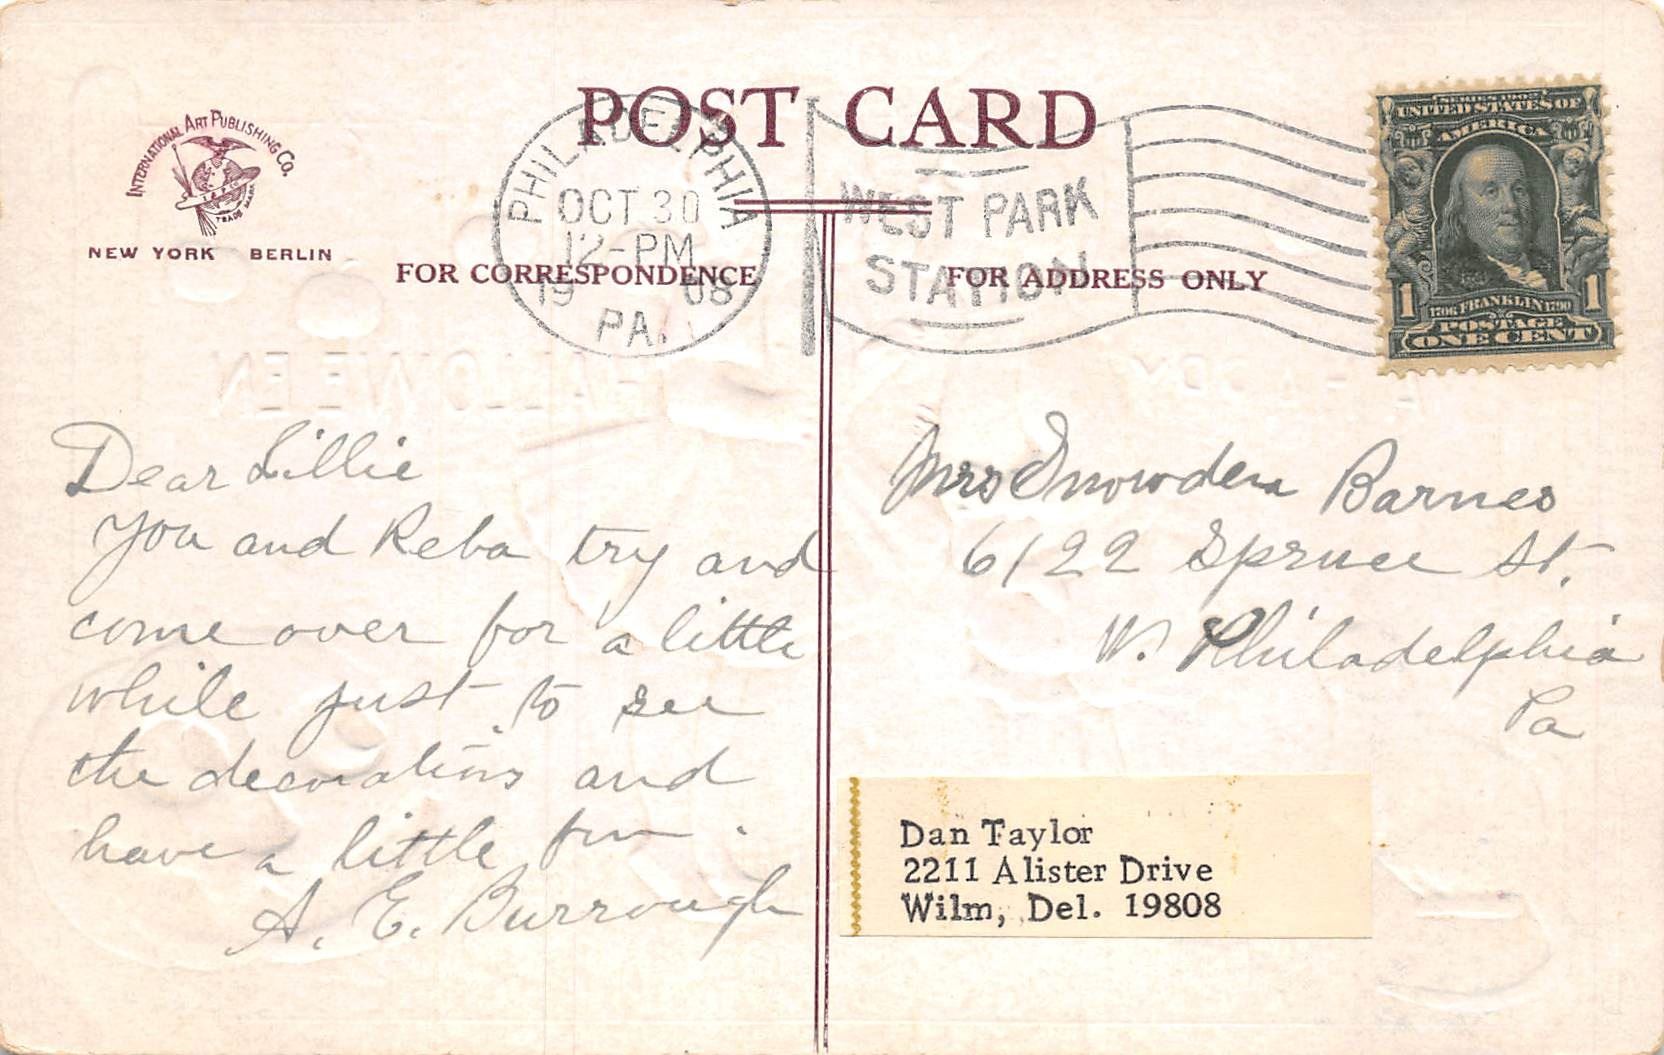 POST CARD
INTERNATIONAL ART PUBLISHING CO.
I.A.P.C
TRADE MARK
NEW YORK BERLIN
PHILADELPHIA
OCT 30
12-PM
19 08
PA.
WEST PARK
STATION
FOR CORRESPONDENCE
FOR ADDRESS ONLY
SERIES 1902
UNITED STATES OF
AMERICA
1 1
FRANKLIN
1706 1790
POSTAGE
ONE CENT
A HAPPY
HALLOWE'EN
Dear Lillie
You and Reba try and
come over for a little
while just to see
the decorations and
have a little fun.
A. E. Burrough
Mrs Snowden Barnes
6122 Spruce St.
W. Philadelphia
Pa
Dan Taylor
2211 Alister Drive
Wilm, Del. 19808